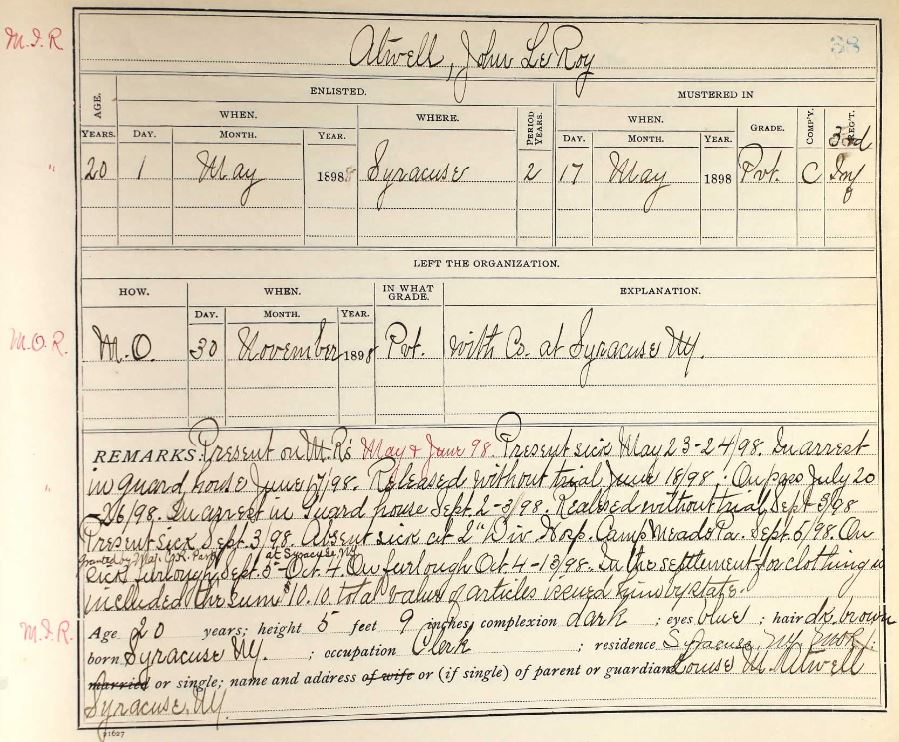 M.I.R
Atwell, John LeRoy
38
AGE. ENLISTED. MUSTERED IN
WHEN. WHERE. PERIOD YEARS. WHEN. GRADE. COMP'Y. REG'T.
YEARS. DAY. MONTH. YEAR. DAY. MONTH. YEAR. 3rd
" 20 1 May 1898 Syracuse 2 17 May 1898 Pvt. C Inf
LEFT THE ORGANIZATION.
HOW. WHEN. IN WHAT GRADE. EXPLANATION.
DAY. MONTH. YEAR.
M.O.R. M.O. 30 November 1898 Pvt. with Co. at Syracuse NY.
REMARKS: Present on M.R's May & June 98. Present sick May 23-24/98. In arrest
" in guard house June 17/98. Released without trial June 18/98. On pass July 20
-26/98. In arrest in Guard house Sept. 2-3/98. Realesed without trial Sept 3/98
Present sick Sept. 3/98. Absent sick at 2" Div. Hosp. Camp Meade Pa. Sept. 5/98. On
granted by Maj. at Syracuse, NY
sick furlough, Sept. 5-Oct. 4. On furlough Oct 4-13/98. In the settlement for clothing is
included the sum $10.10 total value of articles issued him by state.
M.I.R. Age 20 years; height 5 feet 9 inches; complexion dark ; eyes blue ; hair dk. brown
born Syracuse NY. ; occupation Clerk ; residence Syracuse NY
married or single; name and address of wife or (if single) of parent or guardian Louise M. Atwell
Syracuse. NY.
21627